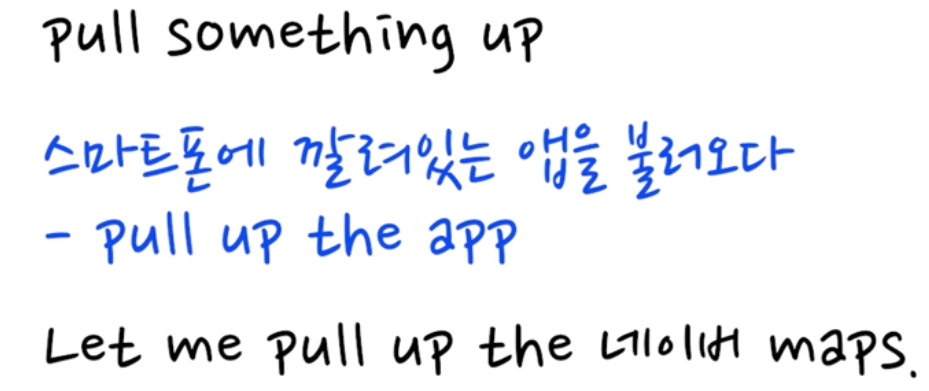 pull something up
스마트폰에 깔려있는 앱을 불러오다
- pull up the app
Let me pull up the 네이버 maps.